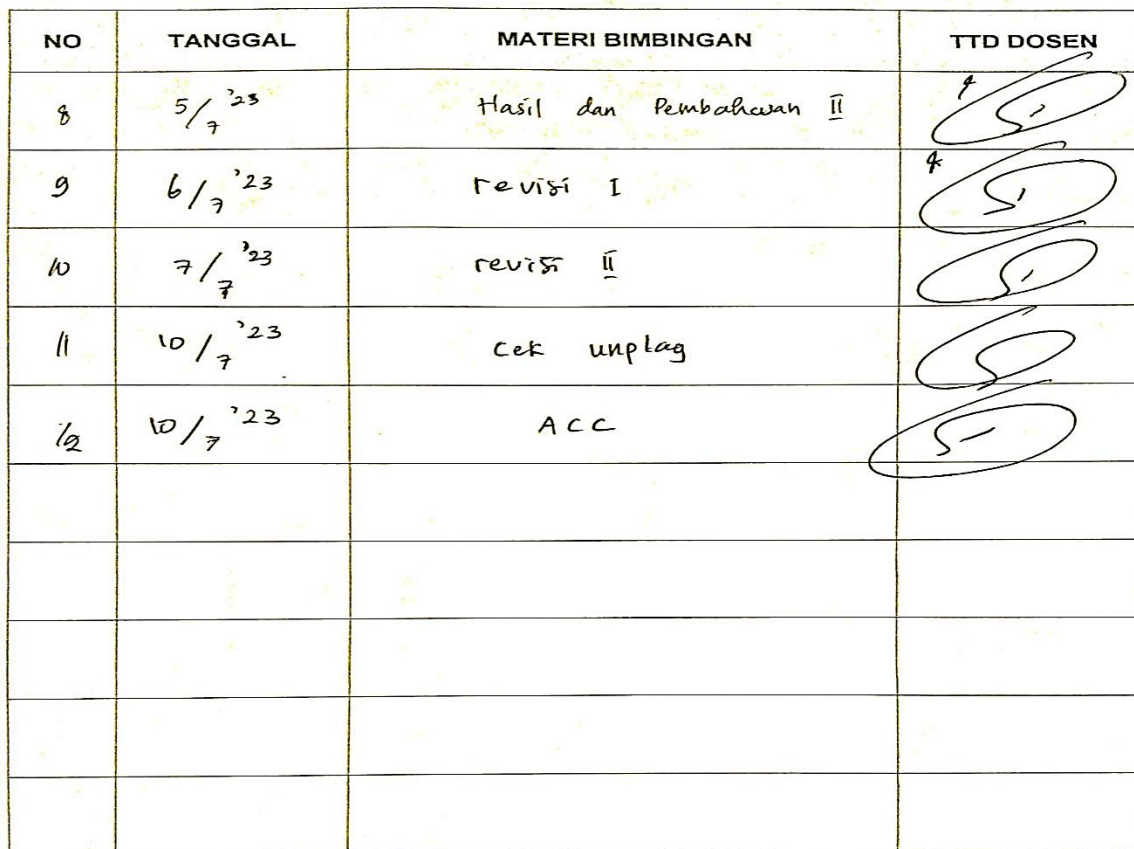 NO TANGGAL MATERI BIMBINGAN TTD DOSEN
8 5/7 '23 Hasil dan Pembahasan II
9 6/7 '23 revisi I
10 7/7 '23 revisi II
11 10/7 '23 Cek unplag
12 10/7 '23 ACC